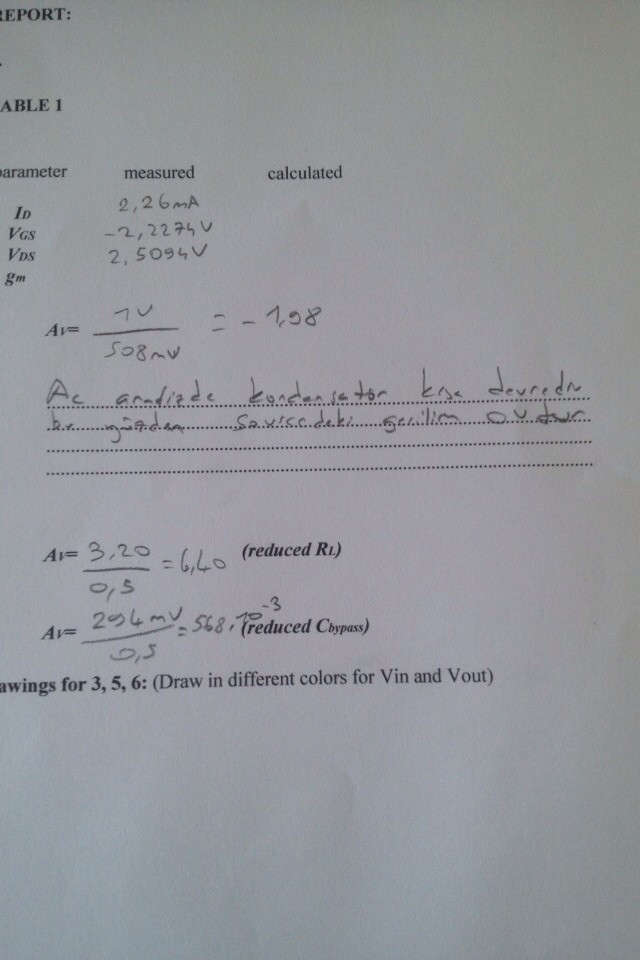 REPORT:
ABLE 1
parameter measured calculated
ID 2,26mA
VGS -2,2274V
VDS 2,5094V
gm
Av= 1V / 508mV = -1,98
Ac analizde kondansatör kısa devredir
bu yüzden Source deki gerilim 0V dur
Av= 3,20 / 0,5 = 6,40 (reduced RL)
Av= 294mV / 0,5 = 568.10-3 (reduced Cbypass)
awings for 3, 5, 6: (Draw in different colors for Vin and Vout)